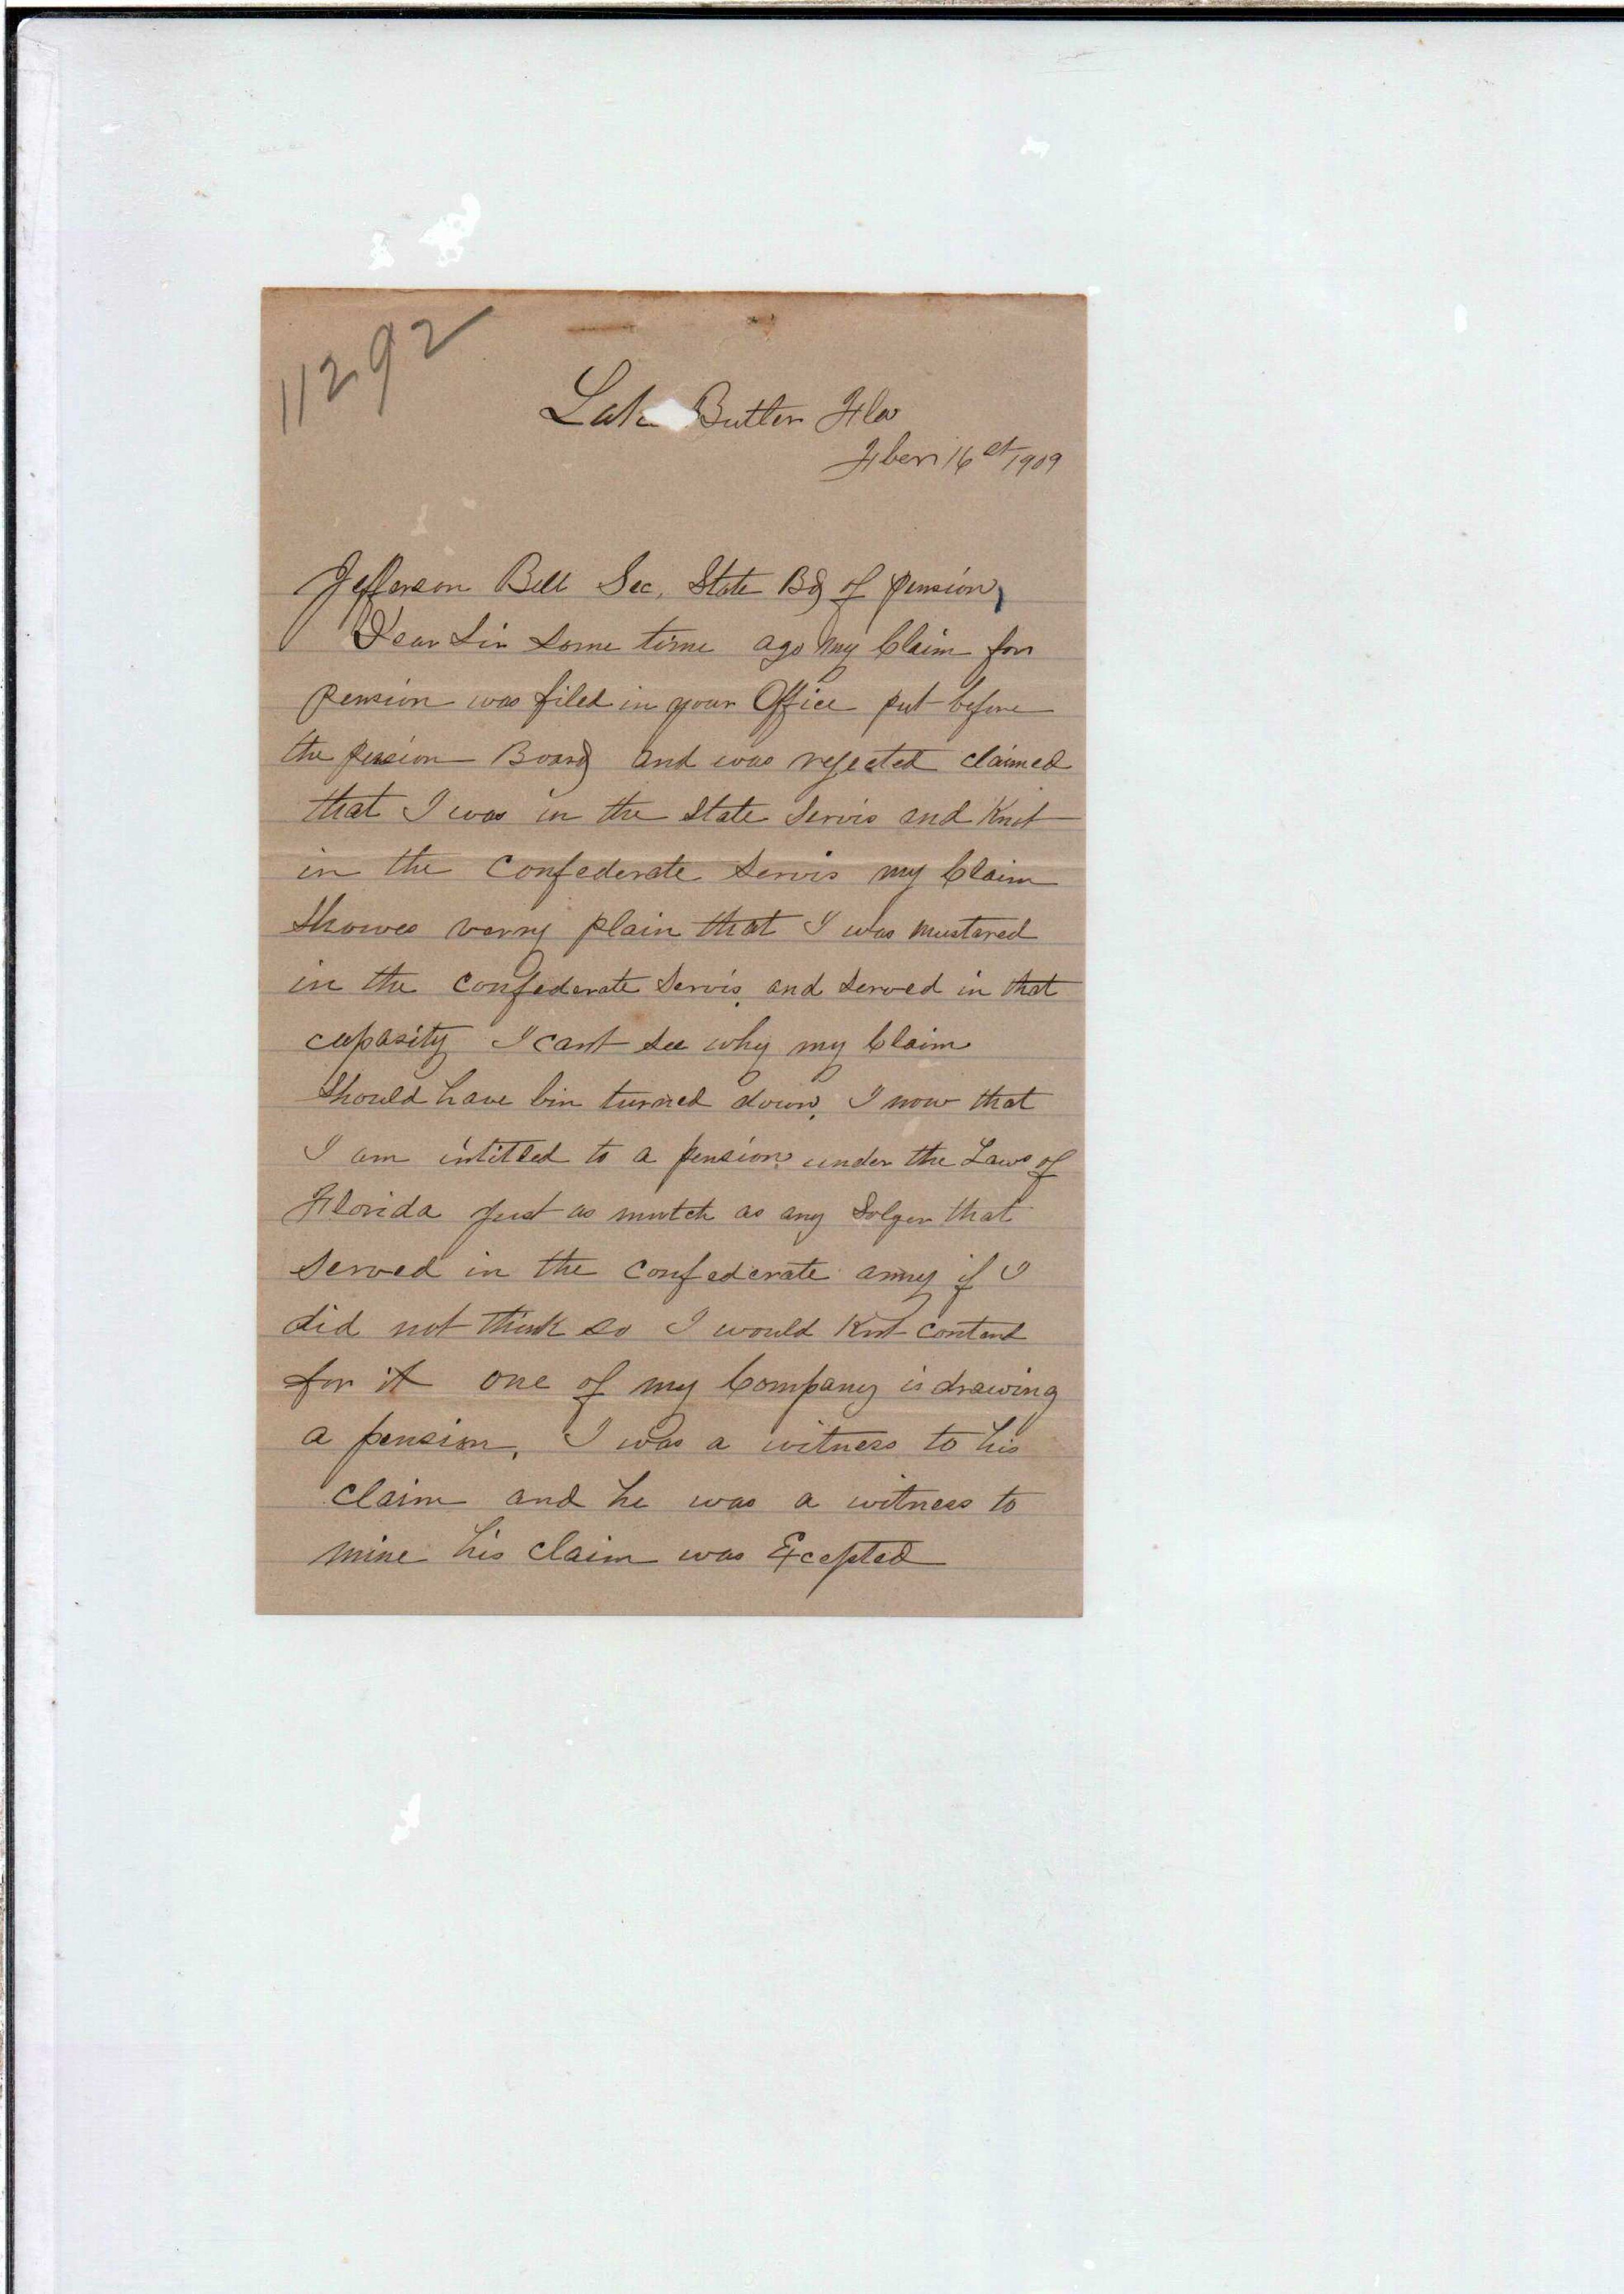 11292
Lake Butler Fla
Fber 16 et 1909
Jefferson Bell Sec. State Bd of pension,
Dear Sir Some time ago my Claim for
pension was filed in your Office put before
the pension Board and was rejected claimed
that I was in the State Servis and Knot
in the Confederate Servis my Claim
Showes verry plain that I was mustared
in the Confederate Servis. and Served in that
capasity I cant see why my Claim
Should have bin turned down. I now that
I am intitled to a pension under the Laws of
Florida Just as mutch as any Solger that
Served in the Confederate army if I
did not think so I would Knot contend
for it one of my Company is drawing
a pension. I was a witness to his
Claim and he was a witness to
mine his Claim was Excepted